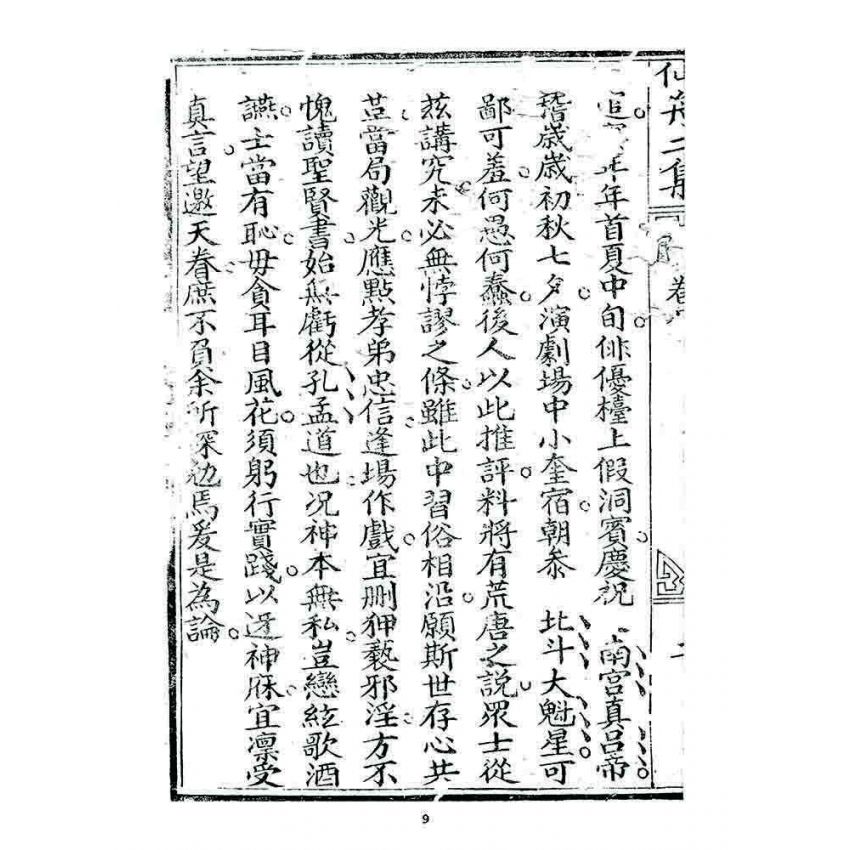 年首夏中旬俳優檯上假洞賓慶祝 南宮真吕帝
嗤歲歲初秋七夕演劇場中小奎宿朝叅 北斗大魁星可
鄙可羞何愚何蠢後人以此推評料將有荒唐之說眾士從
茲講究未必無悖謬之條雖此中習俗相沿願斯世存心共
莖當局觀光應點孝弟忠信逢場作戲宜刪狎褻邪淫方不
愧讀聖賢書始無虧從孔孟道也况神本無私豈戀絃歌酒
讌士當有恥毋貪耳目風花須躬行實踐以迓神庥宜凛受
真言望邀天眷庶不負余所深边焉爰是為論
二集
卷
9